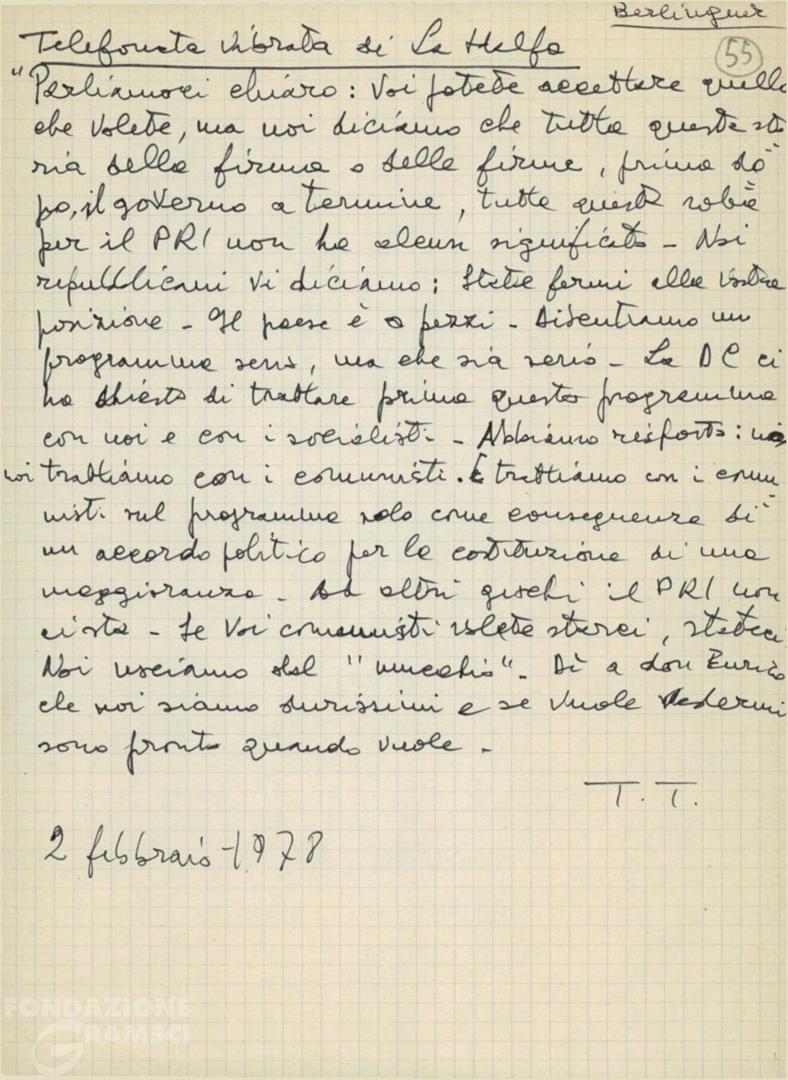 Berlinguer
55
Telefonata vibrata di La Malfa
"Parliamoci chiaro: Voi potete accettare quello
che volete, ma noi diciamo che tutta questa sto
ria della firma o delle firme, prima do
po, il governo a termine, tutta questa roba
per il PRI non ha alcun significato - Noi
repubblicani vi diciamo: state fermi alla vostra
posizione - Il paese è a pezzi - Discutiamo un
programma serio, ma che sia serio - La DC ci
ha chiesto di trattare prima questo programma
con noi e con i socialisti - Abbiamo risposto: no
noi trattiamo con i comunisti. E trattiamo con i comu
nisti sul programma solo come conseguenza di
un accordo politico per la costituzione di una
maggioranza - Ad altri giochi il PRI non
ci sta - Se voi comunisti volete starci, stateci
Noi usciamo dal "mucchio". Dì a don Enrico
che noi siamo durissimi e se vuole vedermi
sono pronto quando vuole -
T. T.
2 febbraio 1978
FONDAZIONE
GRAMSCI